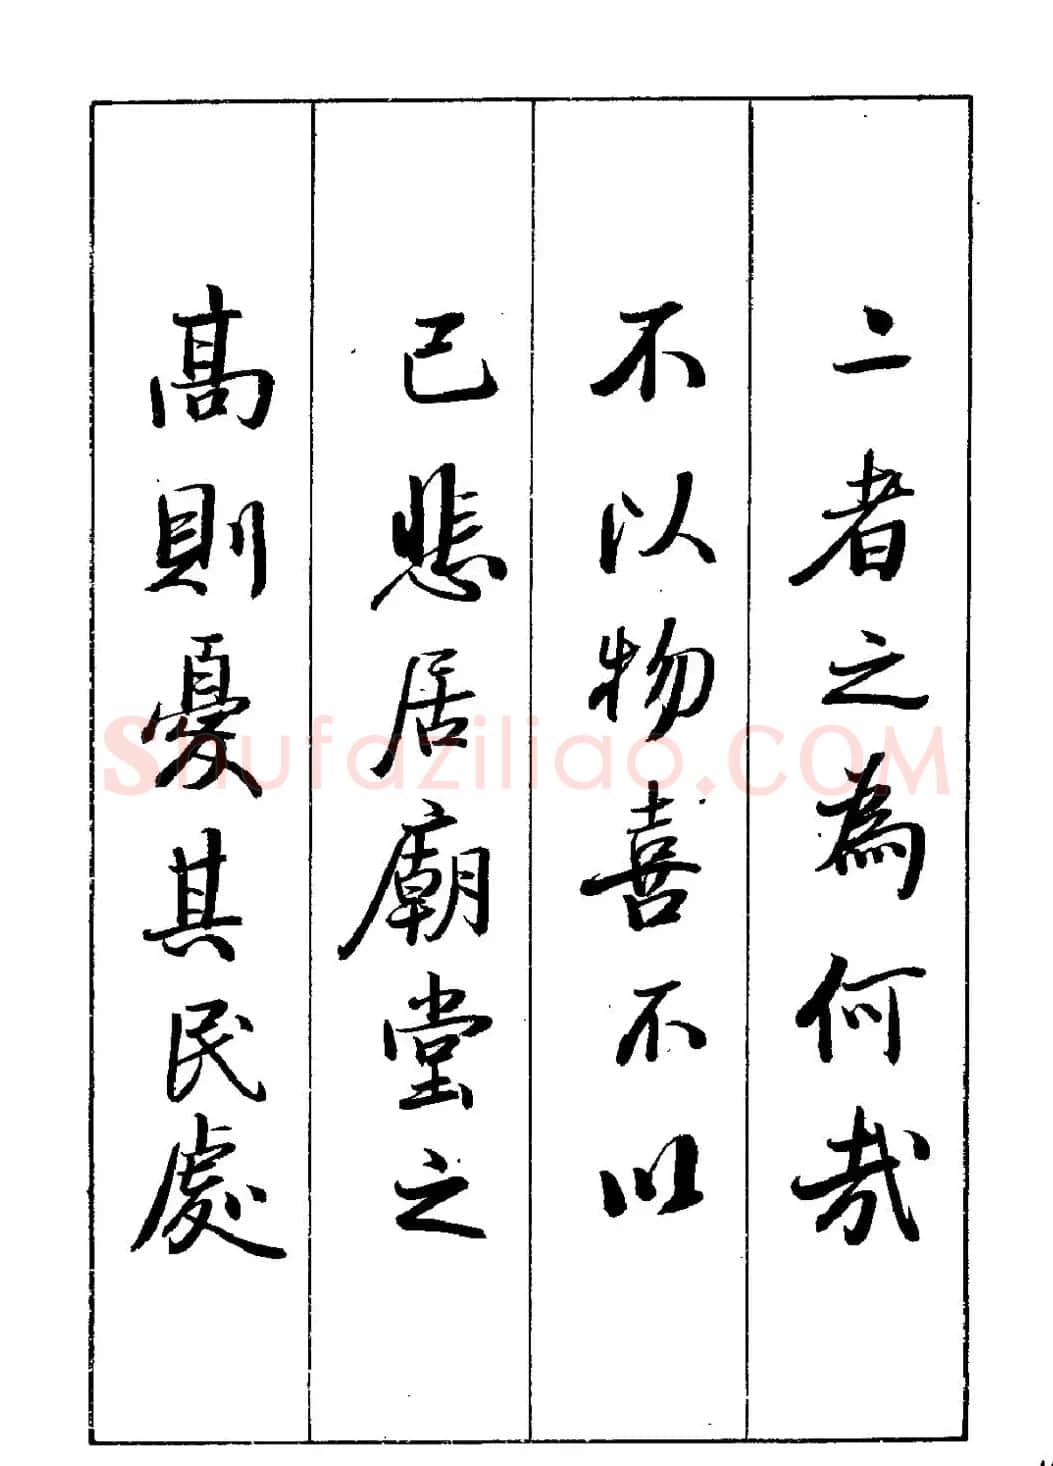 二者之為何哉
不以物喜不以
己悲居廟堂之
高則憂其民處
Shufaziliao.COM